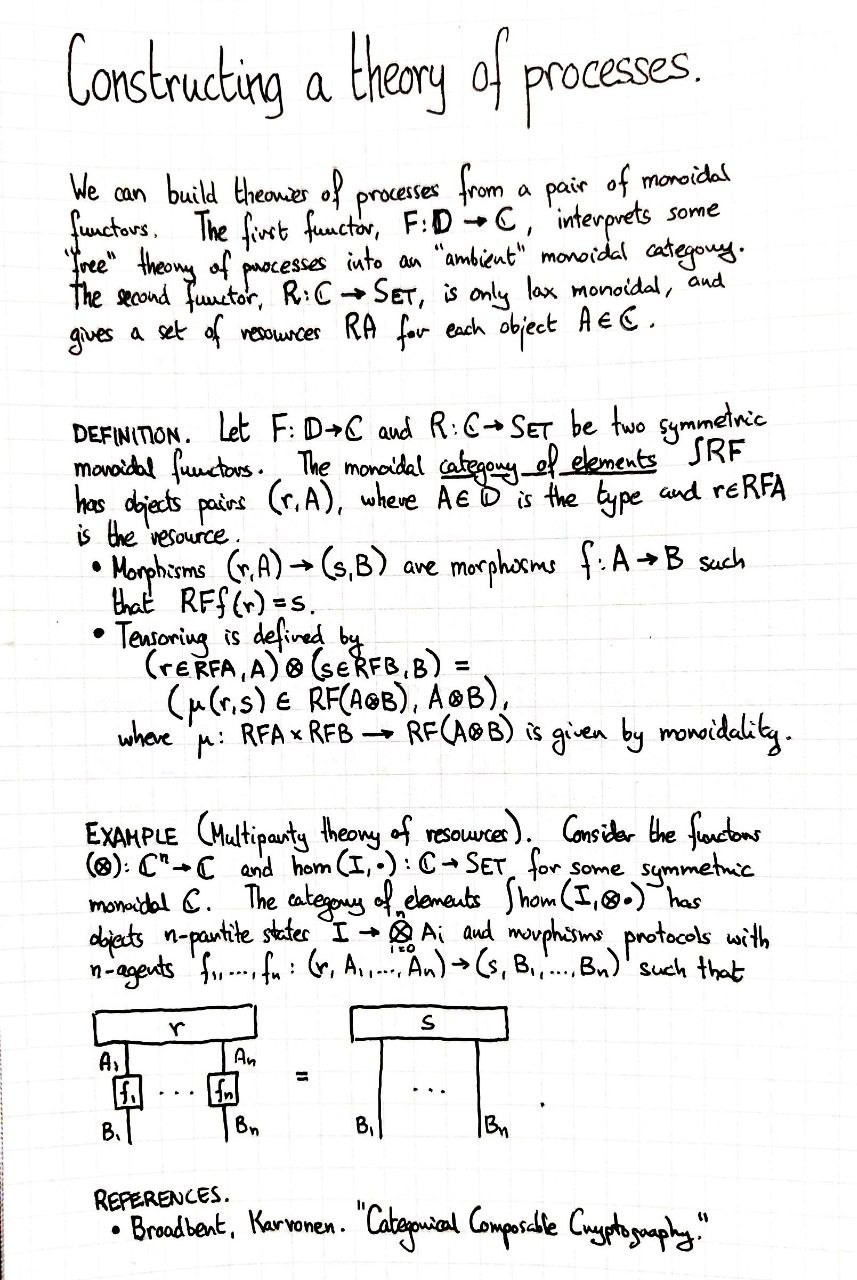 Constructing a theory of processes.
We can build theories of processes from a pair of monoidal
functors. The first functor, F: 𝔻 → ℂ, interprets some
"free" theory of processes into an "ambient" monoidal category.
The second functor, R: ℂ → SET, is only lax monoidal, and
gives a set of resources RA for each object A ∈ ℂ.
DEFINITION. Let F: 𝔻→ℂ and R: ℂ→SET be two symmetric
monoidal functors. The monoidal category of elements ∫RF
has objects pairs (r,A), where A ∈ 𝔻 is the type and r∈RFA
is the resource.
• Morphisms (r,A) → (s,B) are morphisms f: A → B such
that RFf(r) = s.
• Tensoring is defined by
(r∈RFA, A) ⊗ (s∈RFB, B) =
(μ(r,s) ∈ RF(A⊗B), A⊗B),
where μ: RFA × RFB → RF(A⊗B) is given by monoidality.
EXAMPLE (Multiparty theory of resources). Consider the functors
(⊗): ℂⁿ → ℂ and hom(I,•): ℂ → SET for some symmetric
monoidal ℂ. The category of elements ∫hom(I,⊗•) has
objects n-partite states I → ⊗ⁿᵢ₌₀ Ai and morphisms protocols with
n-agents f₁,...,fn : (r, A₁,..., An) → (s, B₁,..., Bn) such that
r s
A₁ An
f₁ ... fn = ...
B₁ Bn B₁ Bn .
REFERENCES.
• Broadbent, Karvonen. "Categorical Composable Cryptography."